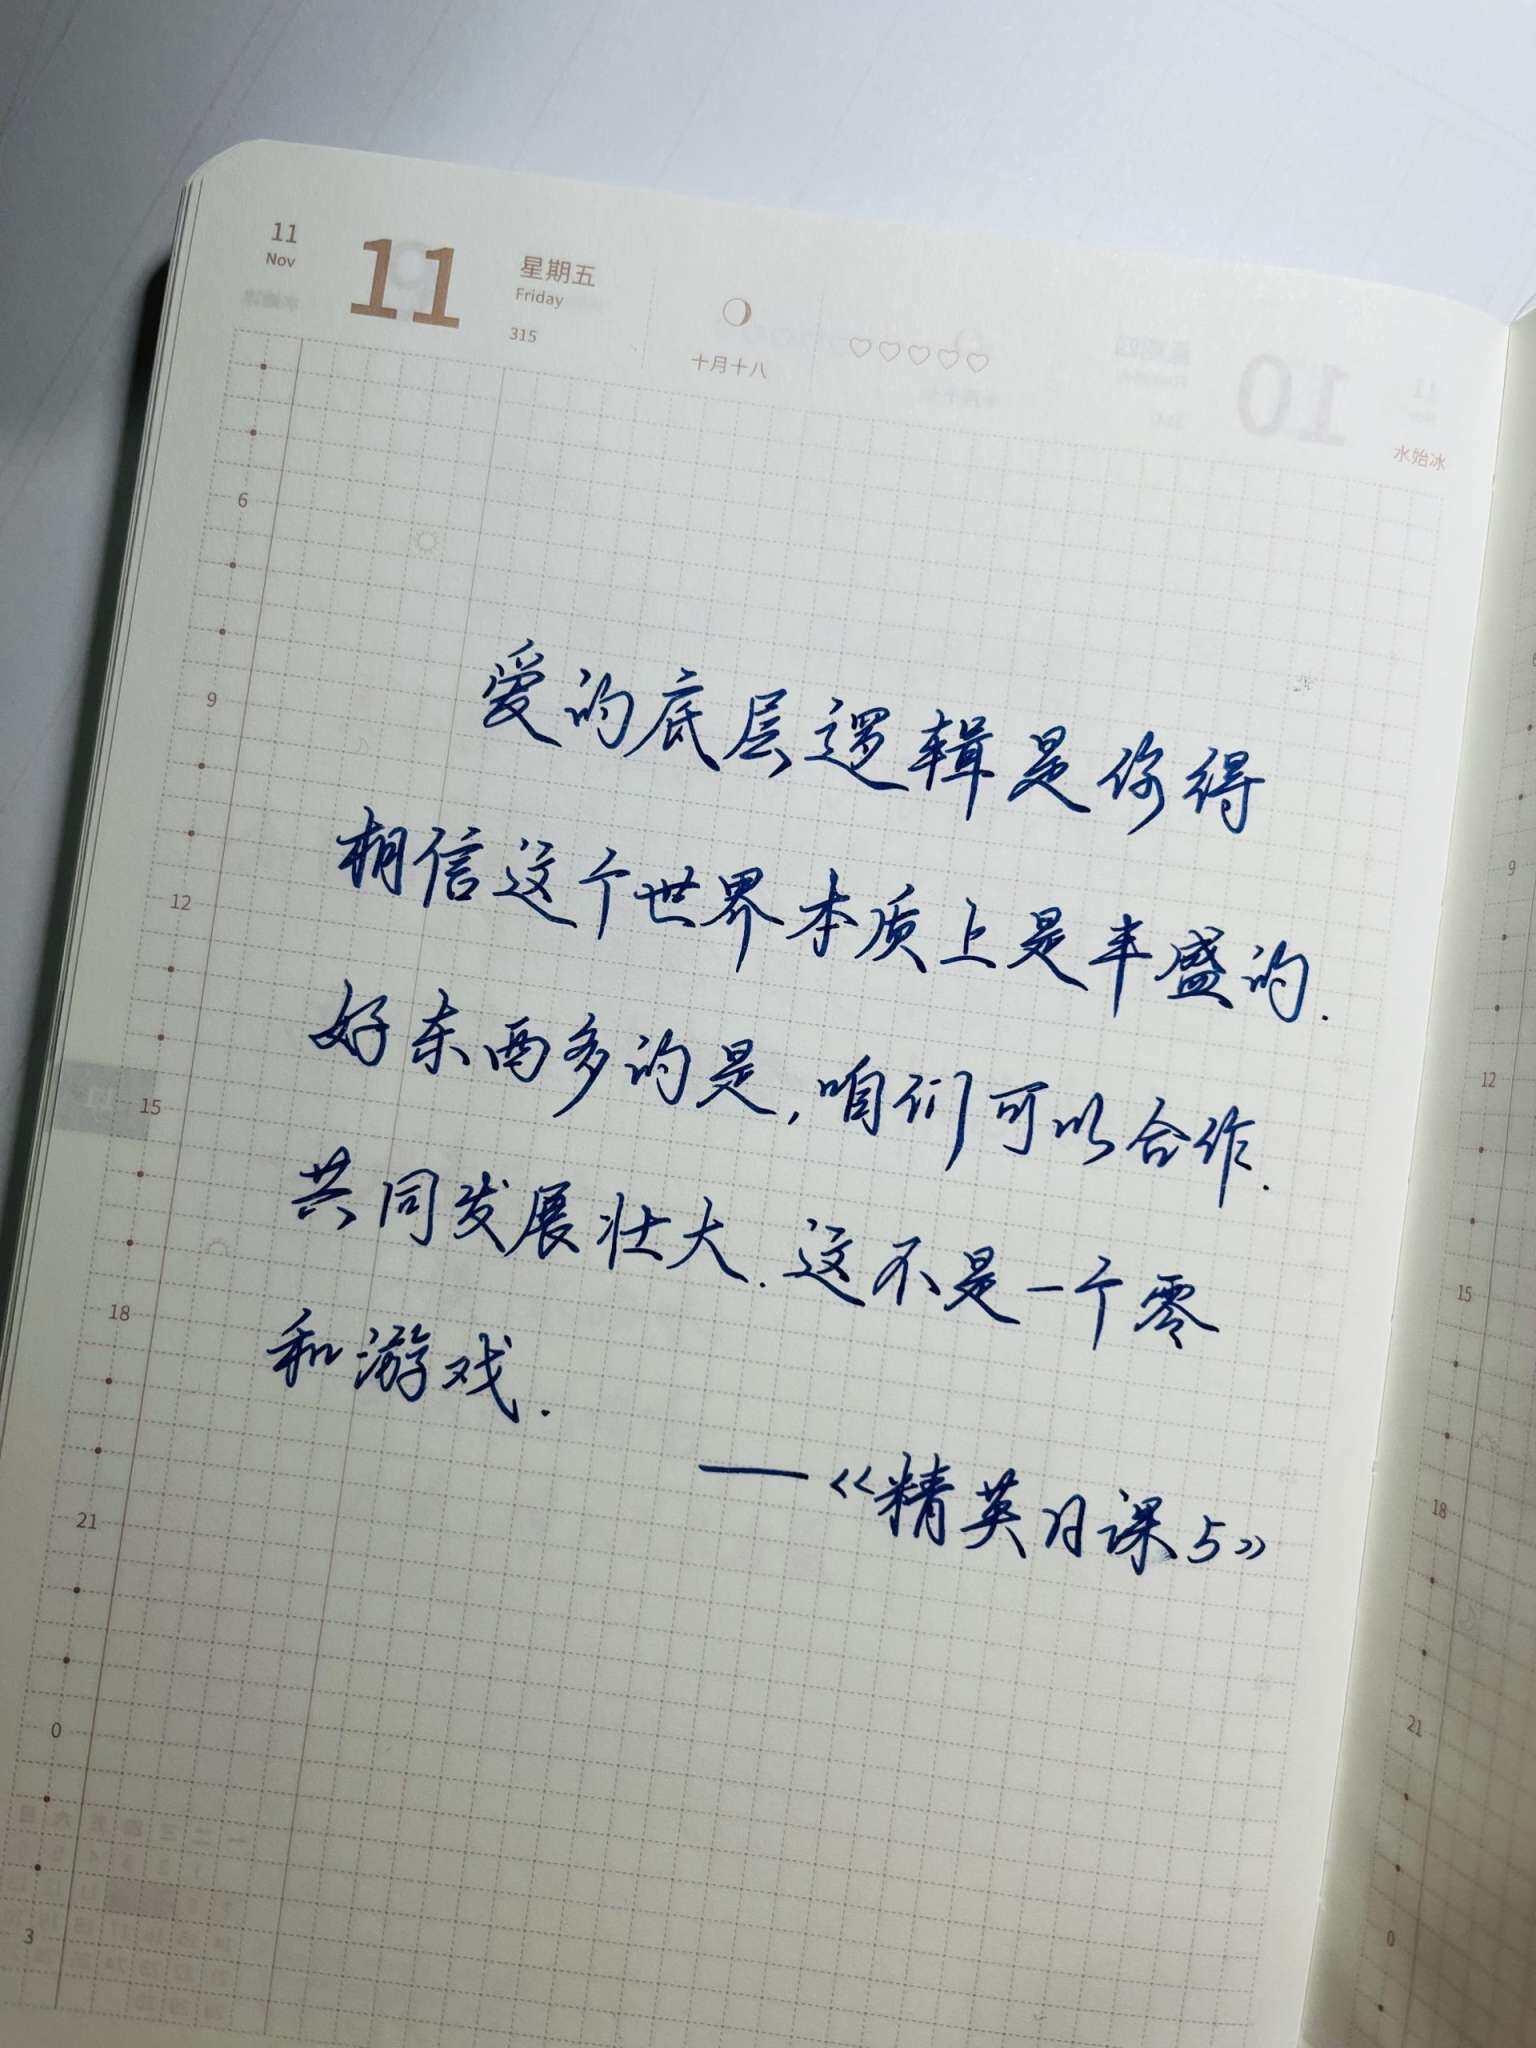 11
Nov
11
星期五
Friday
315
十月十八
水始冰
6
9
12
15
18
21
0
3
爱的底层逻辑是你得
相信这个世界本质上是丰盛的.
好东西多的是,咱们可以合作.
共同发展壮大.这不是一个零
和游戏.
——《精英日课5》
9
12
15
18
21
0